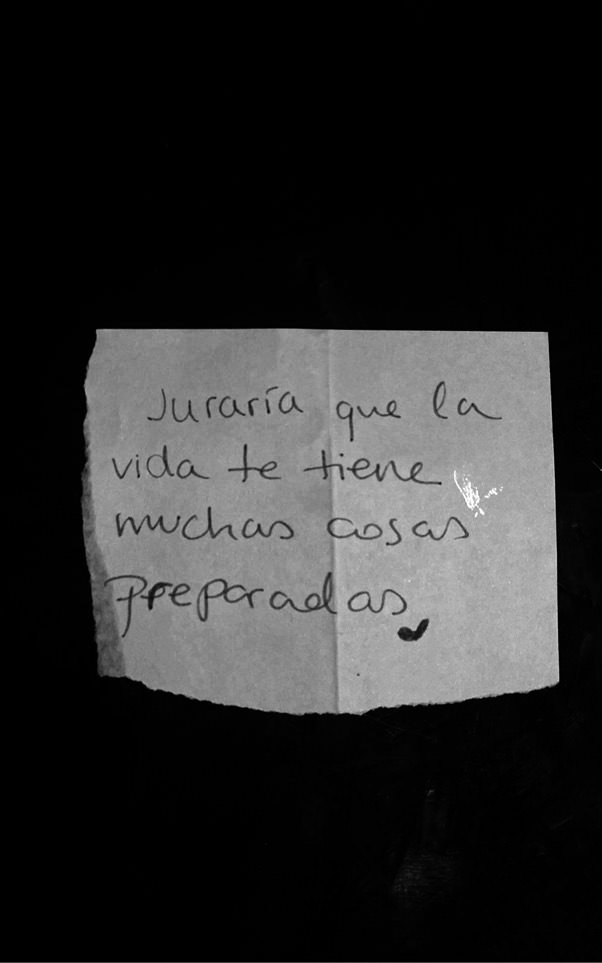 Juraría que la
vida te tiene
muchas cosas
preparadas